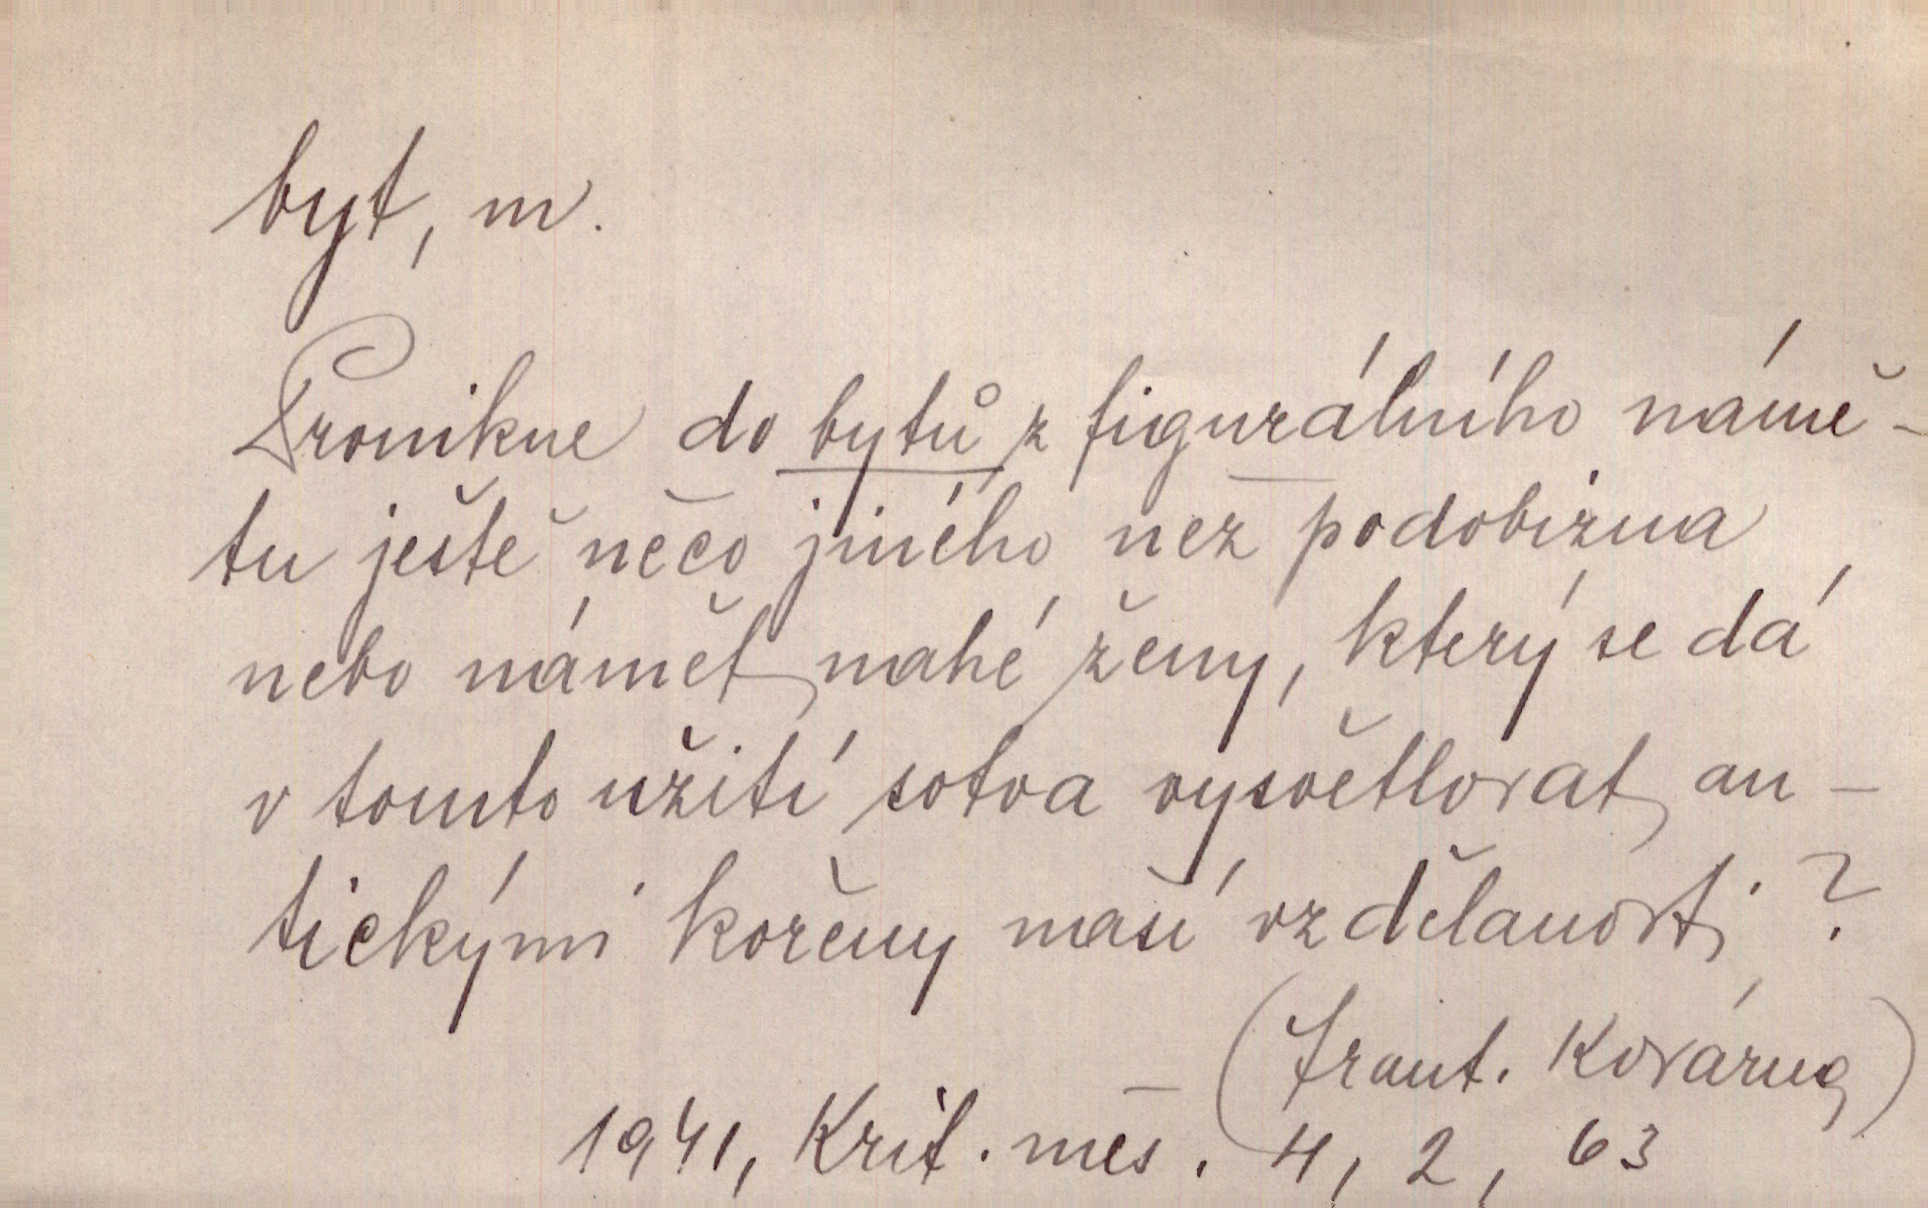 byt, m.
Pronikne do bytů z figurálního námě-
tu ještě něco jiného než podobizna,
nebo námět nahé ženy, který se dá
v tomto užití sotva vysvětlovat an-
tickými kořeny naší vzdělanosti?
(Frant. Kovárna)
1941, Krit. měs. 4, 2, 63